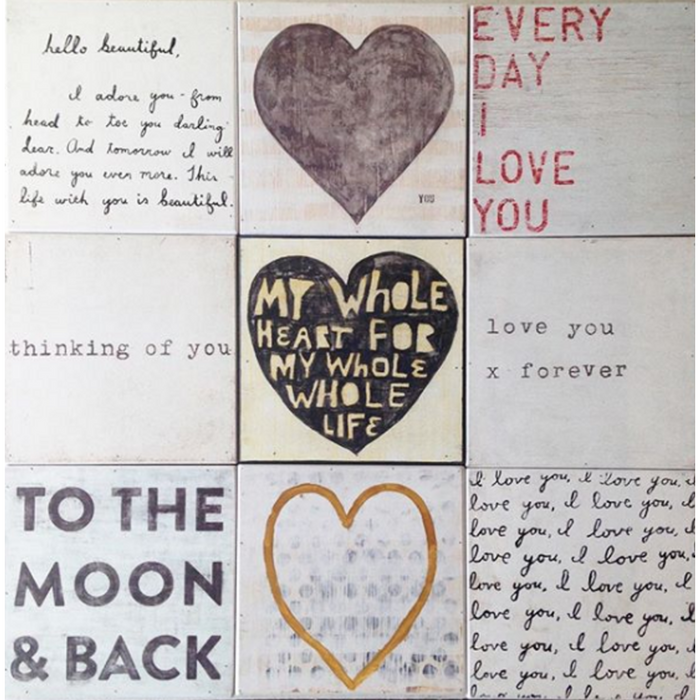 hello beautiful,
I adore you - from
head to toe you darling
dear. And tomorrow I will
adore you even more. This
life with you is beautiful.
YOU
EVERY
DAY
I
LOVE
YOU
thinking of you
MY WHOLE
HEART FOR
MY WHOLE
WHOLE
LIFE
love you
x forever
TO THE
MOON
& BACK
I love you, I love you, I
love you, I love you, I
love you, I love you, I
love you, I love you,
love you, I love you, I
love you, I love you, I
love you, I love you, I
love you, I love you, I